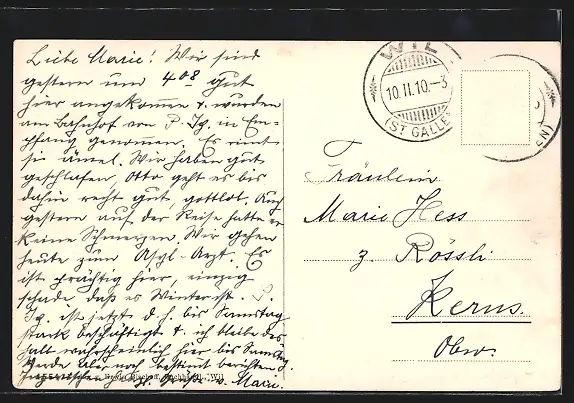 Liebe Marie! Wir sind
gestern um 4⁰⁸ gut
hier angekommen & wurden
am Bahnhof von P. Ig. in Em-
pfang genommen. Es
Wir haben gut
geschlafen, Otto geht es bis
dahin recht gut, gottlob. Auch
gestern auf der Reise hatte er
keine Schmerzen. Wir gehen
heute zum Arzt. Es
ist prächtig hier, einzig
schade, daß es Winter ist. P.
Ig. ist jetzt d. h. bis Samstag
stark beschäftigt & ich bleibe des
halb wahrscheinlich hier bis Samstag.
Werde aber noch bestimmt berichten.
Inzwischen Marie.
WIL
10.II.10.-3
(ST. GALLEN)
Fräulein
Marie Hess
z. Rössli
Kerns.
Obw.